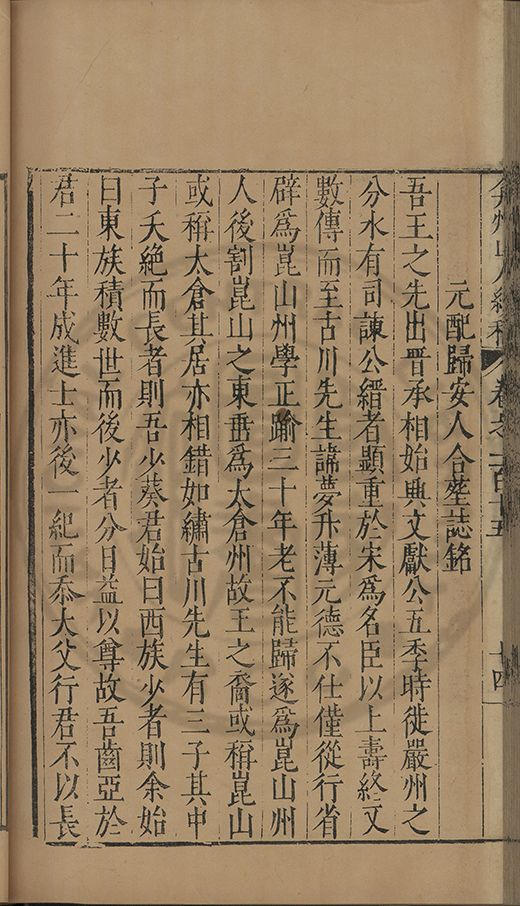 弇州山人續稿 卷之一百十五 十四
元配歸安人合塟誌銘
吾王之先出晋承相始興文獻公五季時徙嚴州之
分水有司諫公縉者顯重於宋爲名臣以上壽終又
數傳而至古川先生諱夢升薄元德不仕僅從行省
辟爲崑山州學正踰三十年老不能歸遂爲崑山州
人後割崑山之東垂爲太倉州故王之裔或稱崑山
或稱太倉其居亦相錯如繡古川先生有三子其中
子夭絶而長者則吾少葵君始曰西族少者則余始
曰東族積數世而後少者分日益以尊故吾齒亞於
君二十年成進士亦後一紀而忝大父行君不以長